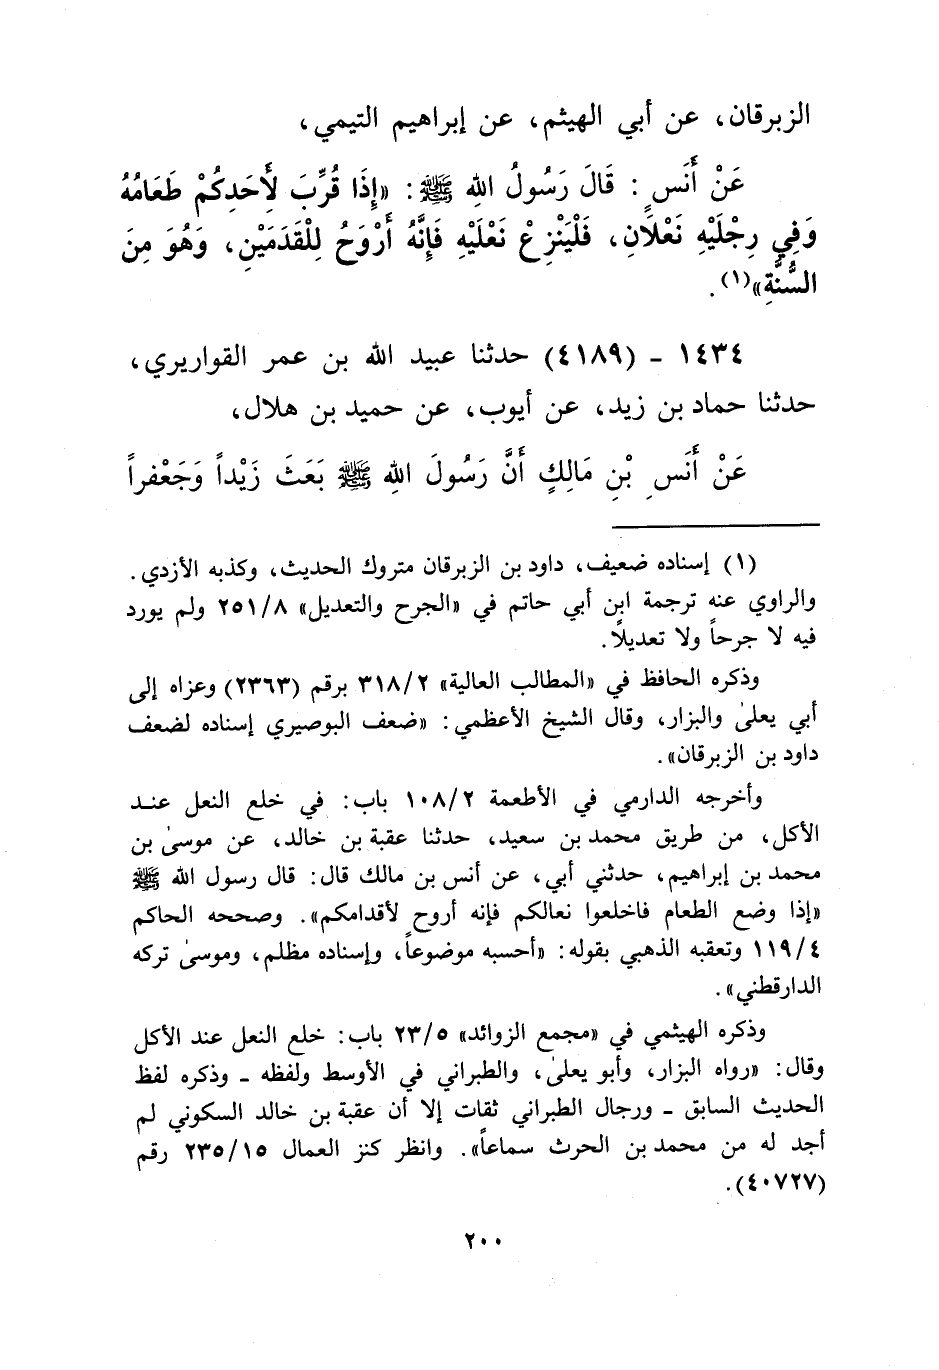 الزبرقان، عن أبي الهيثم، عن إبراهيم التيمي،
عَنْ أَنَسٍ : قَالَ رَسُولُ اللهِ ﷺ : «إِذَا قُرِّبَ لأَحَدِكُمْ طَعَامُهُ
وَفِي رِجْلَيْهِ نَعْلَانِ، فَلْيَنْزِعْ نَعْلَيْهِ فَإِنَّهُ أَرْوَحُ لِلْقَدَمَيْنِ، وَهُوَ مِنَ
السُّنَّةِ»(١) .
١٤٣٤ - (٤١٨٩) حدثنا عبيد الله بن عمر القواريري،
حدثنا حماد بن زيد، عن أيوب، عن حميد بن هلال،
عَنْ أَنَسِ بْنِ مَالِكٍ أَنَّ رَسُولَ اللهِ ﷺ بَعَثَ زَيْداً وَجَعْفراً
(١) إسناده ضعيف، داود بن الزبرقان متروك الحديث، وكذبه الأزدي.
والراوي عنه ترجمة ابن أبي حاتم في «الجرح والتعديل» ٢٥١/٨ ولم يورد
فيه لا جرحاً ولا تعديلًا.
وذكره الحافظ في «المطالب العالية» ٣١٨/٢ برقم (٢٣٦٣) وعزاه إلى
أبي يعلىٰ والبزار، وقال الشيخ الأعظمي: «ضعف البوصيري إسناده لضعف
داود بن الزبرقان».
وأخرجه الدارمي في الأطعمة ١٠٨/٢ باب: في خلع النعل عند
الأكل، من طريق محمد بن سعيد، حدثنا عقبة بن خالد، عن موسىٰ بن
محمد بن إبراهيم، حدثني أبي، عن أنس بن مالك قال: قال رسول الله ﷺ
«إذا وضع الطعام فاخلعوا نعالكم فإنه أروح لأقدامكم». وصححه الحاكم
١١٩/٤ وتعقبه الذهبي بقوله: «أحسبه موضوعاً، وإسناده مظلم، وموسىٰ تركه
الدارقطني».
وذكره الهيثمي في «مجمع الزوائد» ٢٣/٥ باب: خلع النعل عند الأكل
وقال: «رواه البزار، وأبو يعلىٰ، والطبراني في الأوسط ولفظه - وذكره لفظ
الحديث السابق - ورجال الطبراني ثقات إلا أن عقبة بن خالد السكوني لم
أجد له من محمد بن الحرث سماعاً». وانظر كنز العمال ٢٣٥/١٥ رقم
(٤٠٧٢٧).
٢٠٠